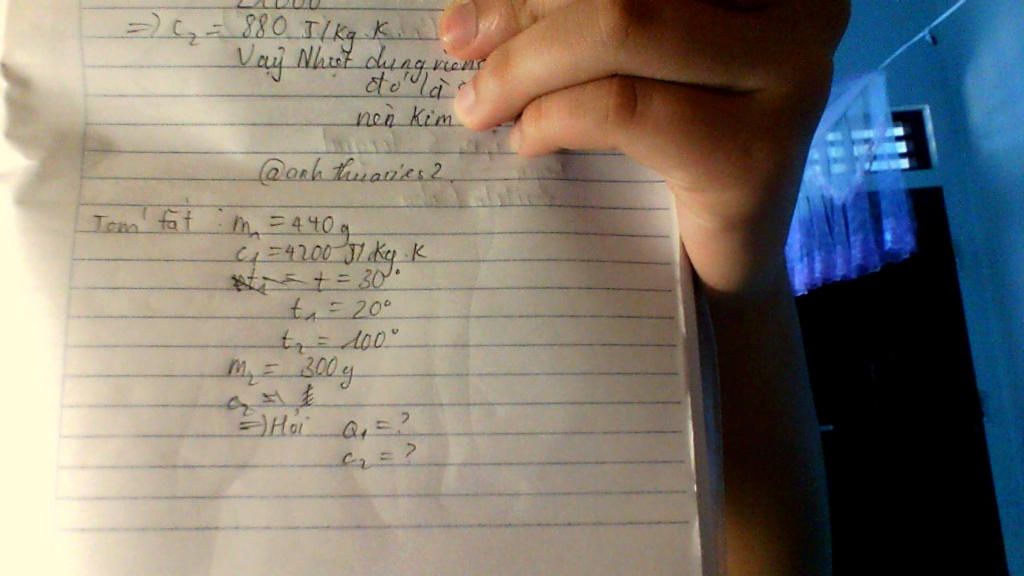 => c₂ = 880 J/kg.K.
Vậy Nhiệt dung riêng
đó là
nên kim
@anhthuaries2.
Tóm tắt : m₁ = 440g
c₁ = 4200 J/kg.K
t = 30°
t₁ = 20°
t₂ = 100°
m₂ = 300g
c₂ =
=> Hỏi Q₁ = ?
c₂ = ?